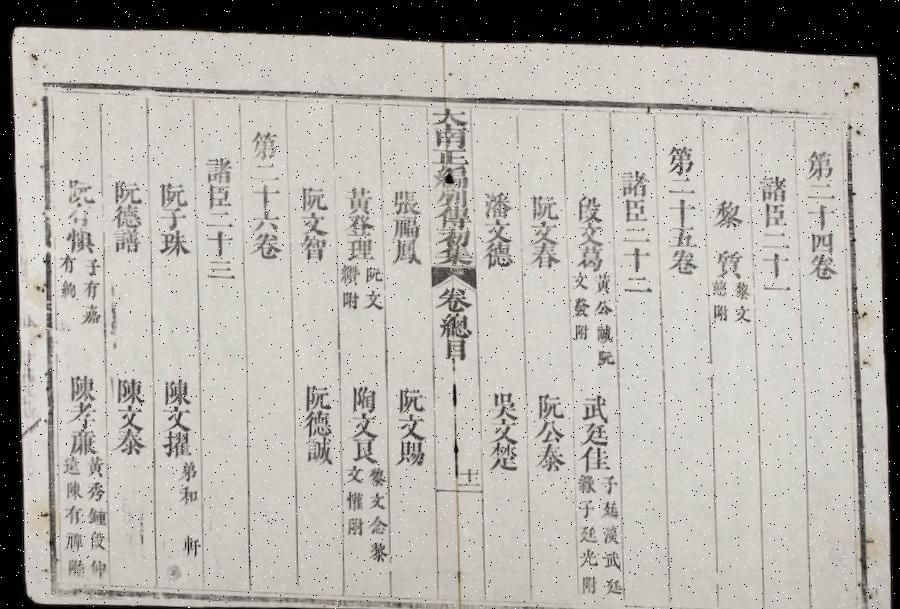 第二十四卷
諸臣二十一
黎質 黎文
德附
第二十五卷
諸臣二十二
段文葛 黃公誠阮
文發附
武廷佳 子廷演武廷
綠子廷光附
阮文春 阮公泰
潘文德 吳文楚
大南正編列傳初集 卷總目 十一
張福鳳 阮文賜
黃登理 阮文
纘附
陶文良 黎文念黎
文懽附
阮文智 阮德誠
第二十六卷
諸臣二十三
阮子珠 陳文擢 弟和
軒
阮德譜 陳文泰
阮 愼 子有嘉
有絢
陳孝廉 黃秀鍾段仲
陳有 附